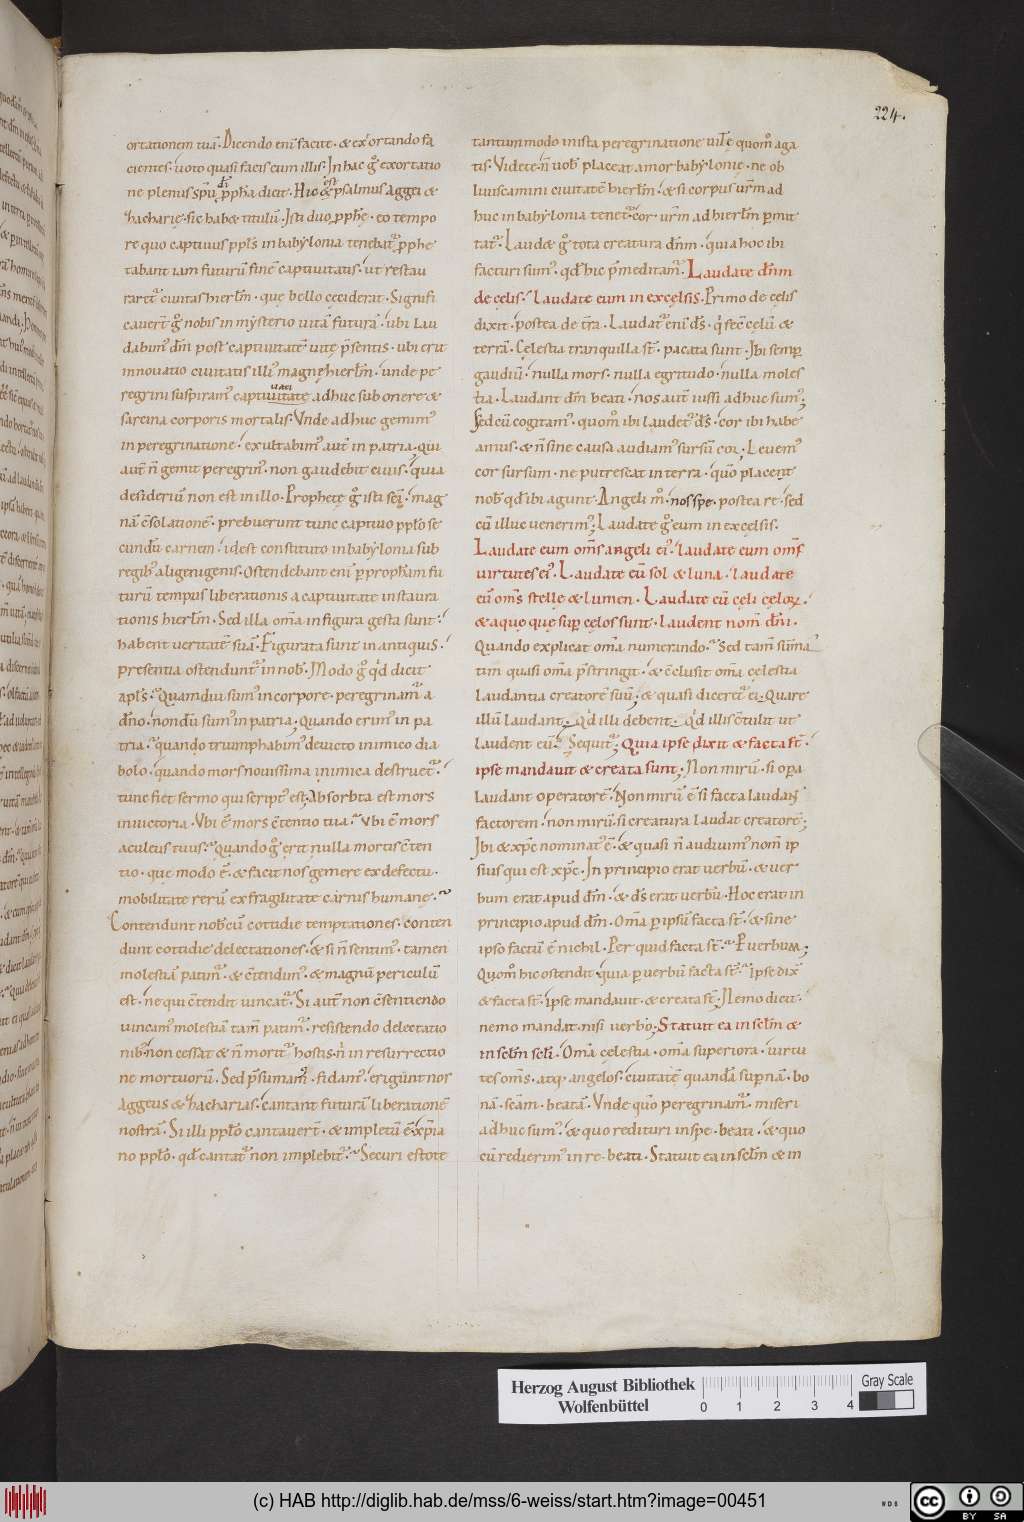 224.
ortationem tuā. Dicendo eni facite. & exortando fa
cientes. uoto quasi facis cum illis. In hac g exortatio
ne plenus spū dī ppha dicit. Hic est psalmus aggei &
zacharię. sic habet titulū. Isti duo pphę. eo tempo
re quo captiuus ppls in babylonia tenebat pphe
tabant iam futurū finē captiuitatis. ut restau
raret ciuitas hierlm. que bello ceciderat. Signifi
cauert g nobis in mysterio uitā futurā. ubi lau
dabim dm post captiuitatē uitę psentis. ubi erit
innouatio ciuitatis illi magnę hierlm. unde pe
regrini suspiram captiuitate adhuc sub onere &
sarcina corporis mortalis. Vnde adhuc gemim
in peregrinatione. exultabim aut in patria. Qui
aut n̄ gemit peregrin. non gaudebit ciuis. quia
desideriū non est in illo. Prophetę g isti sci. mag
nā cs̄olationē. prebuerunt tunc captiuo pplo se
cundū carnem. idest constituto in babylonia sub
regib aligenigenis. Ostendebant eni p prophām fu
turū tempus liberationis a captiuitate instaura
tionis hierlm. Sed illa om̄a in figura gesta sunt.
habent ueritatē suā. Figurata sunt in antiquis.
presentia ostendunt in nob. Modo g qd dicit
apls. Quamdiu sum in corpore. peregrinam a
dn̄o. nondū sum in patria. Quando erim in pa
tria. quando triumphabim deuicto inimico dia
bolo. quando mors nouissima inimica destruet.
tunc fiet sermo qui script est. Absorbta est mors
in uictoria. Vbi ē mors cōtentio tua. Vbi ē mors
aculeus tuus. Quando g erit nulla mortis cōten
tio. que modo ē. & facit nos gemere ex defectu.
mobilitate rerū ex fragilitate carnis humanę.
Contendunt nobcū cottidie temptationes. conten
dunt cottidie delectationes. & si n̄ sentim. tamen
molestiā patim. & cōtendim. & magnū periculū
est. ne qui cōtendit uincat. Si aut non cōsentiendo
uincim molestiā tam patim. resistendo delectatio
nib. non cessat & n̄ morit hostis. n̄ in resurrectio
ne mortuorū. Sed psumam. fidam. erigunt nos
Aggeus & zacharias. cantant futurā liberationē
nostrā. Si illi pplo cantauert. & impletū ē. xp̄ia
no pplo. qd cantat non implebit. Securi estote
tantummodo in ista peregrinatione uitę quom aga
tis. Videte n̄ uob placeat amor babylonię. ne ob
liuiscamini ciuitatē hierlm. & si corpus urm ad
huc in babylonia tenet. cor urm ad hierlm pmit
tat. Laudet g tota creatura dn̄m. quia hoc ibi
facturi sum. qd hic pmeditam. Laudate dn̄m
de cęlis. Laudate eum in excęlsis. Primo de cęlis
dixit. postea de tra. Laudat eni ds. q fec cęlū &
terrā. Cęlestia tranquilla st. pacata sunt. Ibi semp
gaudiū. nulla mors. nulla egritudo. nulla moles
tia. Laudant dm beati. nos aut iussi adhuc sum;
Sed cū cogitam. quom ibi laudet ds. cor ibi habe
amus. & n̄ sine causa audiam sursū cor. Leuem
cor sursum. ne putrescat in terra. quo placent
nob qd ibi agunt. Angeli m. nos spe. postea re. sed
cū illuc uenerim; Laudate g eum in excęlsis.
Laudate eum om̄s angeli ei. laudate eum om̄s
uirtutes ei. Laudate eū sol & luna. laudate
eū om̄s stellę & lumen. Laudate eū cęli cęlorum.
& aquę que sup cęlos sunt. laudent nom dn̄i.
Quando explicat om̄a numerando. Sed tam sūma
tim quasi om̄a pstringit. & cōclusit om̄a cęlestia
laudantia creatorē suū; & quasi diceret ei. Quare
illū laudant. Qd illi debent. Qd illis cōtulit ut
laudent eū. Sequit; Quia ipse dixit & facta st.
ipse mandauit & creata sunt; Non mirū. si opa
laudant operatorē. Non mirū ē si facta laudant
factorem. non mirū si creatura laudat creatorē;
Ibi & xp̄c nominat ē. & quasi n̄ audiuim nom ip
sius qui est xp̄c. In principio erat uerbū. & uer
bum erat apud dm. & ds erat uerbū. Hoc erat in
principio apud dm. Om̄a p ipsū facta st. & sine
ipso factū ē nichil. Per quid facta st. P uerbum;
Quom hic ostendit quia p uerbū facta st. Ipse dix
& facta st. ipse mandauit. & creata st; Nemo dicit.
nemo mandat. nisi uerbo; Statuit ea in sclm &
in sclm scli. Om̄a cęlestia. om̄a superiora. uirtu
tes om̄s. atq. angelos. ciuitatē quandā supnā. bo
nā. scam. beatā. Vnde quo peregrinam. miseri
adhuc sum. & quo redituri in spe. beati. & quo
cū redierim in re. beati. Statuit ea in sclm & in
Herzog August Bibliothek
Wolfenbüttel
0 1 2 3 4
Gray Scale
(c) HAB http://diglib.hab.de/mss/6-weiss/start.htm?image=00451
WDB
cc BY SA